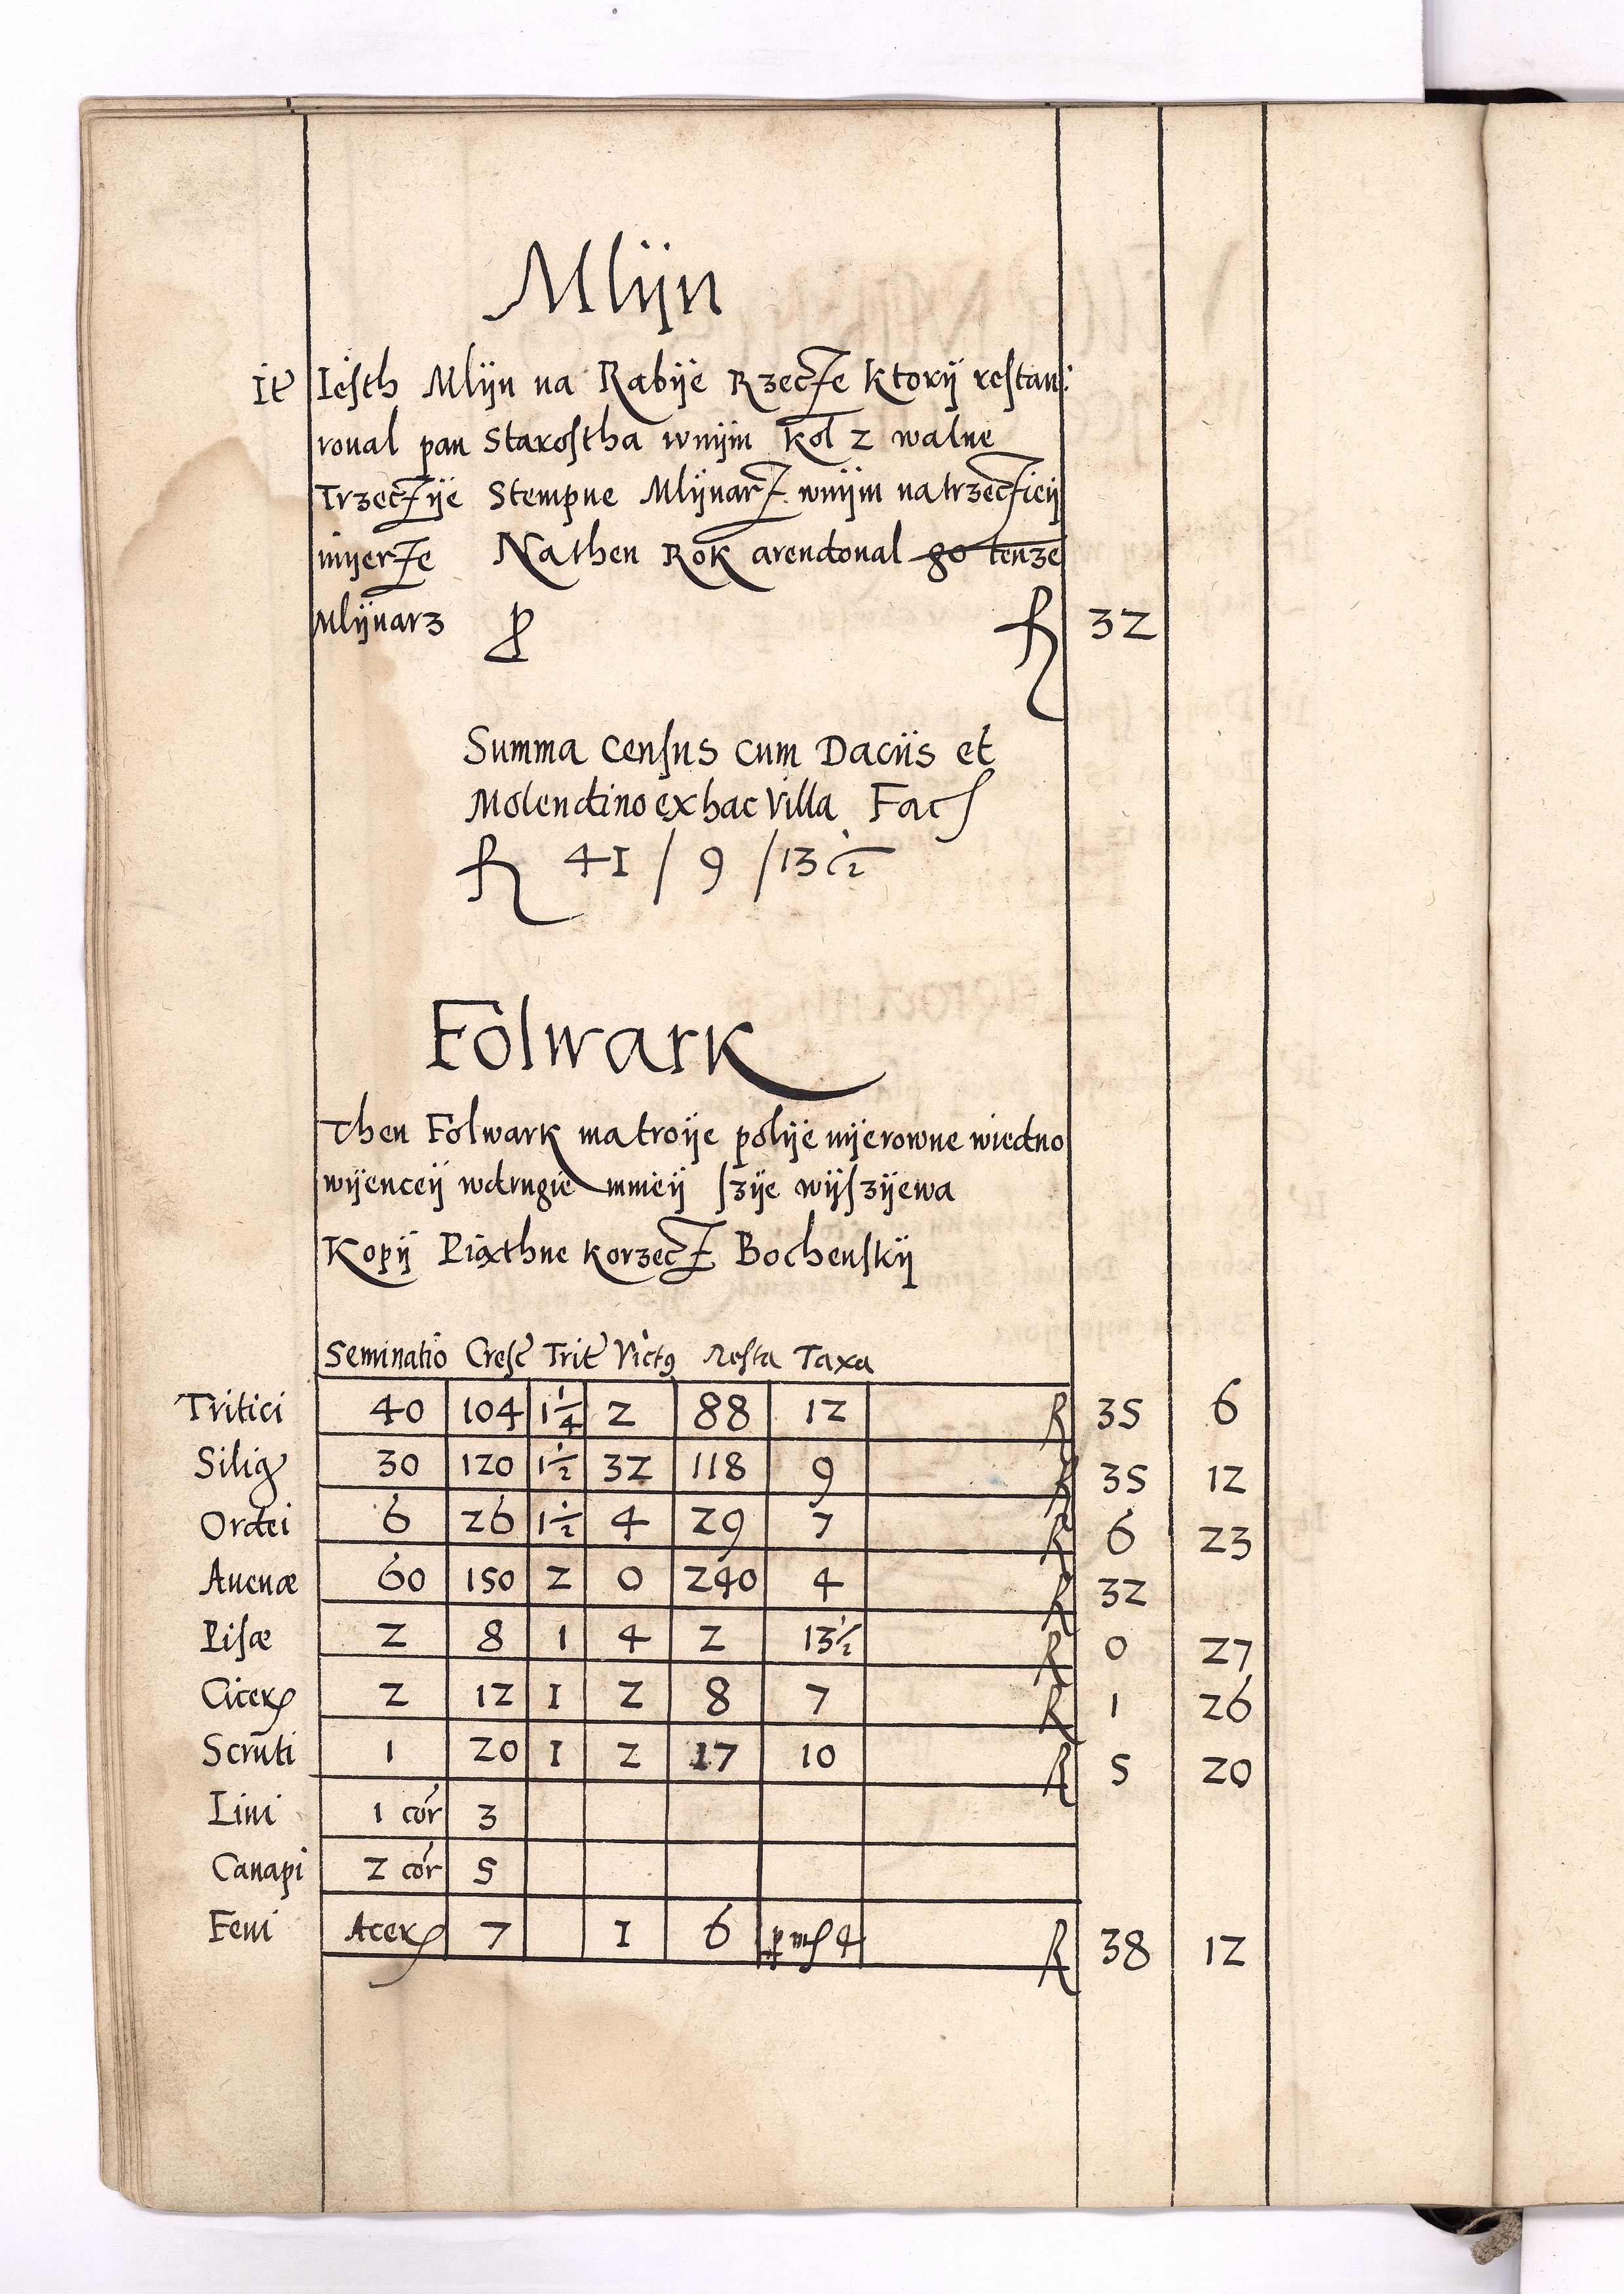 Mlijn
It Iesth Mlijn na Rabije Rzecze ktorij restau:
roual pan Starostha wnijm kol 2 walne
Trzeczije Stempne Mlijnarz wnijm natrzecżieij
mijerze Nathen Rok arendoual go tenze
Mlijnarz ꝓ 32
Summa Census cum Daciis et
Molendino ex hac Villa Fac
41 / 9 / 13 1/2
Folwark
Then Folwark matroije polije nijerowne wiedno
wijenceij wdrugie mnieij szije wijszijewa
Kopij Piąthne korzecz Bochenskij
Seminatio Cresc Trit Victꝯ Resta Taxa
Tritici 40 104 1 1/4 2 88 12 35 6
Silig 30 120 1 1/2 32 118 9 35 12
Ordei 6 26 1 1/2 4 29 7 6 23
Auenæ 60 150 2 0 240 4 32
Pisæ 2 8 1 4 2 13 1/2 0 27
Cicer 2 12 1 2 8 7 1 26
Scruti 1 20 1 2 17 10 5 20
Lini 1 cor 3
Canapi 2 cor 5
Feni Acer 7 1 6 38 12